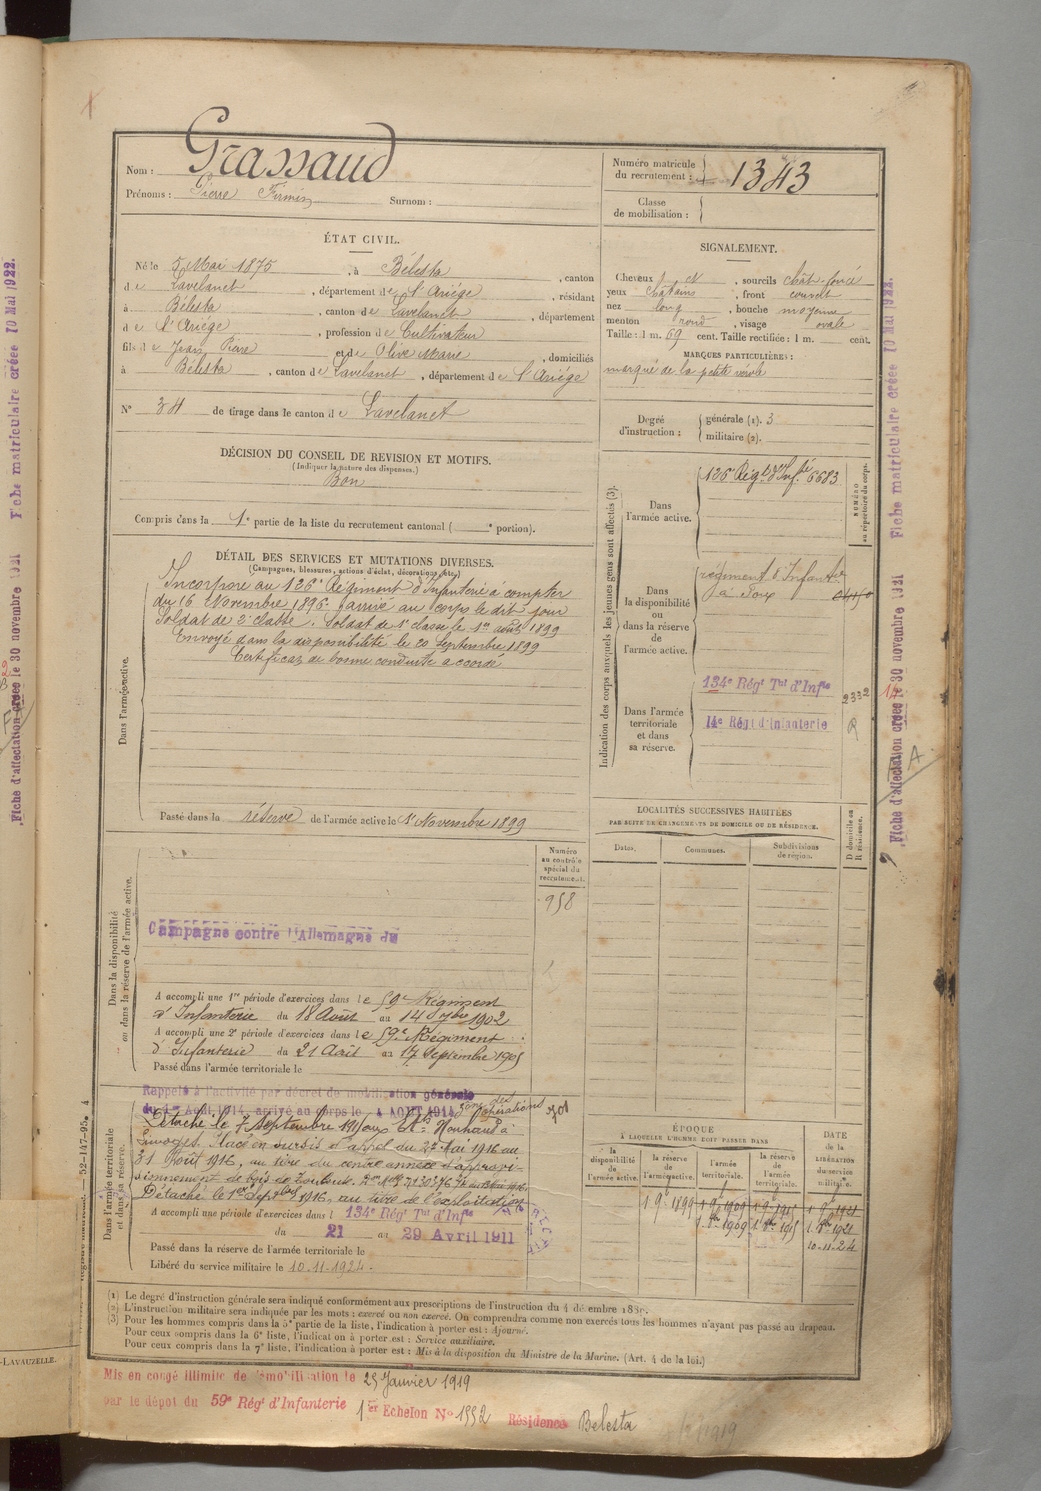 Nom : Grassaud
Prénoms : Pierre Firmin Surnom :
Numéro matricule
du recrutement : 1343
Classe
de mobilisation :
ÉTAT CIVIL.
Né le 5 Mai 1875, à Bélesta, canton
de Lavelanet, département de l'Ariège, résidant
à Bélesta, canton de Lavelanet, département
de l'Ariège, profession de Cultivateur
fils de Jean Pierre et de Olive Marie, domiciliés
à Bélesta, canton de Lavelanet, département de l'Ariège
N° 34 de tirage dans le canton de Lavelanet
SIGNALEMENT.
Cheveux et, sourcils chât. foncé
yeux châtains, front couvert
nez long, bouche moyenne
menton rond, visage ovale
Taille : 1 m. 69 cent. Taille rectifiée : 1 m. cent.
MARQUES PARTICULIÈRES :
marqué de la petite vérole
Degré
d'instruction :
générale (1). 3
militaire (2).
DÉCISION DU CONSEIL DE REVISION ET MOTIFS.
(Indiquer la nature des dispenses.)
Bon
Compris dans la 1e partie de la liste du recrutement cantonal ( e portion).
DÉTAIL DES SERVICES ET MUTATIONS DIVERSES.
(Campagnes, blessures, actions d'éclat, décorations, etc.)
Dans l'armée active.
Incorporé au 126e Régiment d'Infanterie à compter
du 16 Novembre 1896. arrivé au corps le dit jour
Soldat de 2e classe. Soldat de 1e classe le 1er août 1899
Envoyé dans la disponibilité le 20 Septembre 1899
Certificat de bonne conduite accordé
Passé dans la réserve de l'armée active le 1er Novembre 1899
Indication des corps auxquels les jeunes gens sont affectés (3).
Dans
l'armée active.
126e Régt d'Infie 6683
NUMÉRO
au répertoire du corps.
Dans
la disponibilité
ou
dans la réserve
de
l'armée active.
régiment d'Infanterie
à Foix
Dans l'armée
territoriale
et dans
sa réserve.
134e Régt Tal d'Infie
14e Régt d'Infanterie
LOCALITÉS SUCCESSIVES HABITÉES
PAR SUITE DE CHANGEMENTS DE DOMICILE OU DE RÉSIDENCE.
Dates.
Communes.
Subdivisions
de région.
D domicile ou
R résidence.
Dans la disponibilité
ou dans la réserve de l'armée active.
Numéro
au contrôle
spécial du
recrutement.
958
Campagne contre l'Allemagne du
A accompli une 1re période d'exercices dans le 59e Régiment
d'Infanterie du 18 Août au 14 7bre 1902
A accompli une 2e période d'exercices dans le 59e Régiment
d'Infanterie du 21 Août au 17 Septembre 1905
Passé dans l'armée territoriale le
Dans l'armée territoriale
et dans sa réserve.
Rappelé à l'activité par décret de mobilisation générale
du 1er Août 1914, arrivé au corps le 4 AOUT 1914
Détaché le 7 Septembre 1915 aux Ets
Limoges. Placé en sursis d'appel du 2 Mai 1916 au
31 Août 1916, au titre du centre annexe d'approvi-
sionnement de bois de
Détaché le 1er Septbre 1916, au titre de l'exploitation
A accompli une période d'exercices dans l 134e Régt Tal d'Infie
du 21 au 29 Avril 1911
Passé dans la réserve de l'armée territoriale le
Libéré du service militaire le 10-11-1924.
ÉPOQUE
À LAQUELLE L'HOMME DOIT PASSER DANS
la
disponibilité
de l'armée active.
la réserve
de
l'armée active.
l'armée
territoriale.
la réserve
de l'armée
territoriale.
DATE
de la
LIBÉRATION
du service
militaire.
1 9e 1899 1 9e 1909 1 9e 1915 1 9e 1921
1 8bre 1909 1 8bre 1915 1 8bre 1921
10-11-24
(1) Le degré d'instruction générale sera indiqué conformément aux prescriptions de l'instruction du 4 décembre 1889.
(2) L'instruction militaire sera indiquée par les mots : exercé ou non exercé. On comprendra comme non exercés tous les hommes n'ayant pas passé au drapeau.
(3) Pour les hommes compris dans la 5e partie de la liste, l'indication à porter est : Ajourné.
Pour ceux compris dans la 6e liste, l'indication à porter est : Service auxiliaire.
Pour ceux compris dans la 7e liste, l'indication à porter est : Mis à la disposition du Ministre de la Marine. (Art. 4 de la loi.)
Mis en congé illimité de démobilisation le 25 Janvier 1919
par le dépôt du 59e Régt d'Infanterie 1er Echelon N° 1552 Résidence Bélesta
Fiche d'affectation créée le 30 novembre 1921 Fiche matriculaire créée 10 Mai 1922.
Fiche d'affectation créée le 30 novembre 1921 Fiche matriculaire créée 10 Mai 1922.
-LAVAUZELLE.